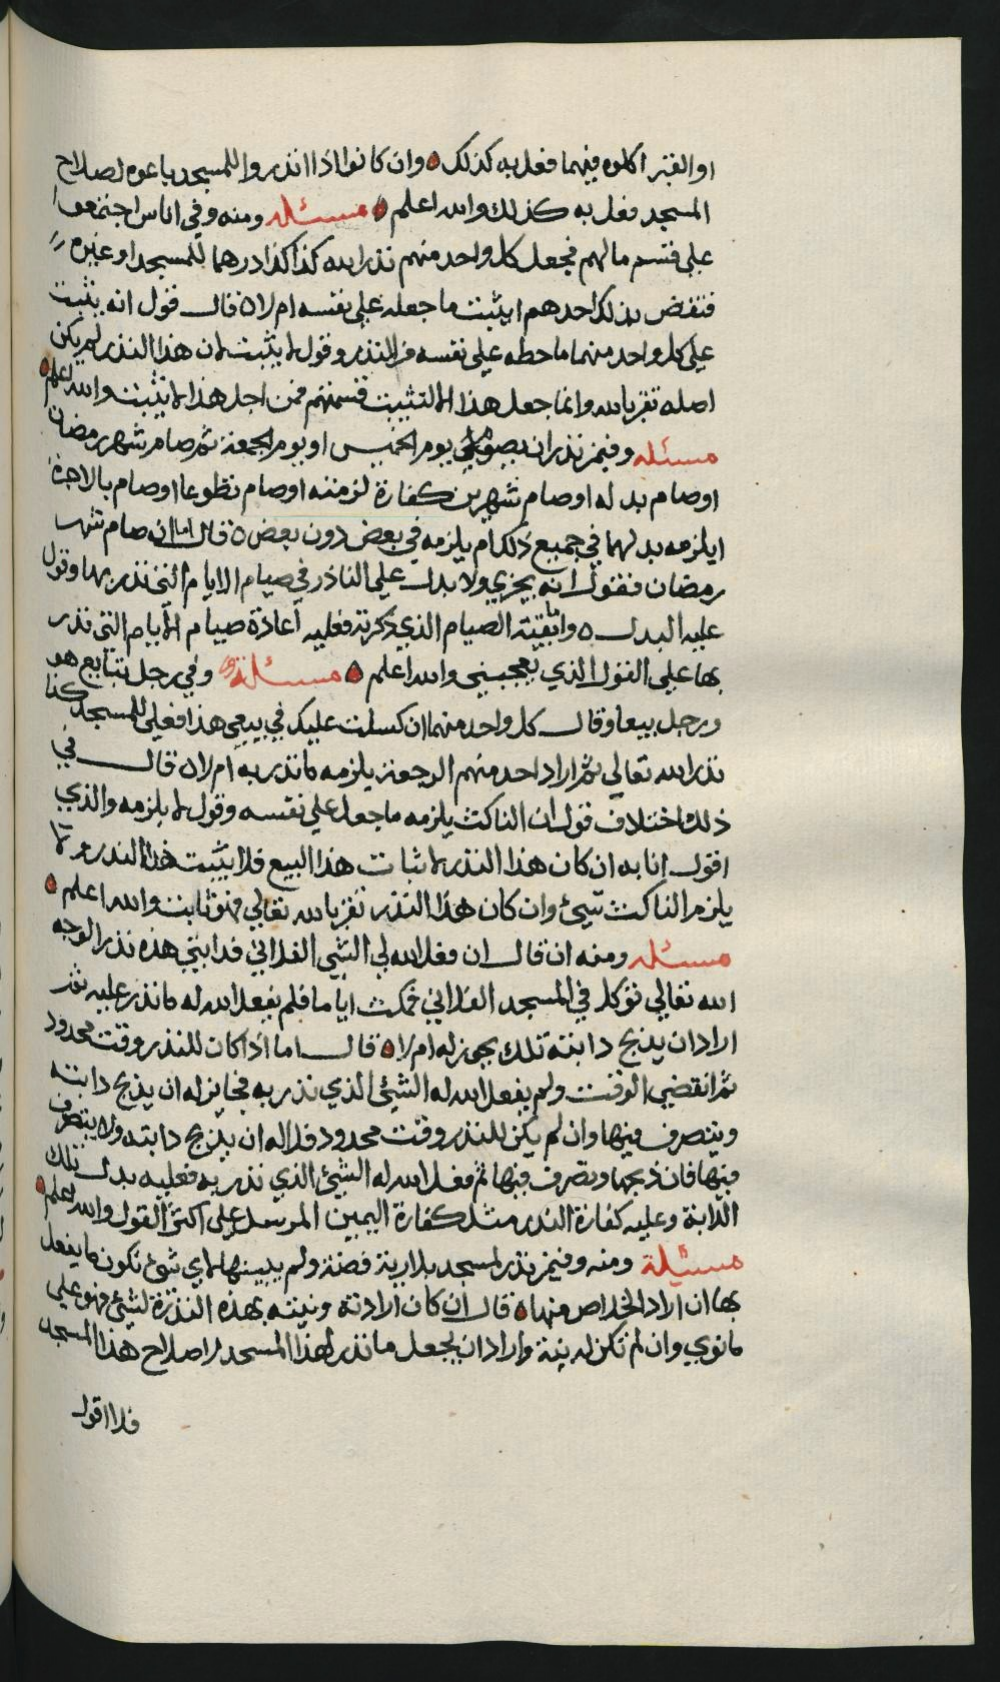 او القبر اكلوه فيهما فعل به كذلك ه وان كانوا اذا انذروا للمسجد باعوه لصلاح
المسجد فعل به كذلك والله اعلم ه مسئله ومنه وفي اناس اجتمعوا
على قسم مالهم فجعل كل واحد منهم نذرا لله كذا كذا درهما للمسجد او غيره
فنقض بذلك احدهم ايثبت ما جعله على نفسه ام لا ه قال قول انه يثبت
على كل واحد منهما ما حطه على نفسه من النذر وقول لا يثبت لان هذا النذر لم يكن
اصله تقربا لله وانما جعل هذا لا لتثبيت قسمتهم فمن اجل هذا لا يثبت والله اعلم ه
مسئله وفيمن نذر ان يصوم يوم الخميس او يوم الجمعة ثم صام شهر رمضان
اوصام بدله اوصام شهرين كفارة لزمته اوصام تطوعا اوصام بالاجرة
ايلزمه بدلهما في جميع ذلك ام يلزمه في بعض دون بعض ه قال اما ان صام شهر
رمضان فنقول انه يجزي ولا بدل على الناذر في صيام الايام التي نذر بها وقول
عليه البدل ه واما بقية الصيام الذي ذكرته فعليه اعادة صيام الايام التي نذر
بها على القول الذي يعجبني والله اعلم ه مسئلة وفي رجل تبايع هو
ورجل بيعا وقال كل واحد منهما ان كسلت عليك في بيعي هذا فعلي للمسجد كذا
نذرا لله تعالى ثم اراد احد منهم الرجعة يلزمه ما نذر به ام لا ه قال في
ذلك اختلاف قول ان الناكث يلزمه ما جعل على نفسه وقول لا يلزمه والذي
اقول انا به ان كان هذا النذر لاثبات هذا البيع فلا يثبت هذا النذر ولا
يلزم الناكث شيئ وان كان هذا النذر تقربا لله تعالى فهو ثابت والله اعلم ه
مسئله ومنه ان قال ان فعل الله لي الشي الفلاني فدابتي هذه نذر لوجه
الله تعالى توكل في المسجد الفلاني فمكث اياما فلم يفعل الله له ما نذر عليه ثم
اراد ان يذبح دابته تلك يجوز له ام لا ه قال اما اذا كان للنذر وقت محدود
ثم انقضى الوقت ولم يفعل الله له الشيئ الذي نذر به فجايز له ان يذبح دابته
ويتصرف فيها وان لم يكن للنذر وقت محدود فلا له ان يذبح دابته ولا يتصرف
فيها فان ذبحها وتصرف فيها ثم فعل الله له الشيئ الذي نذر به فعليه بدل تلك
الدابة وعليه كفارة النذر مثل كفارة اليمين المرسل على اكثر القول والله اعلم ه
مسئلة ومنه وفيمن نذر لمسجد بلارية فضة ولم يبينها لاي شيئ تكون ما يفعل
بها ان اراد الخلاص منها ه قال ان كان ارادته ونيته بهذه النذرة لشيئ فهو على
ما نوى وان لم تكن له نية واراد ان يجعل ما نذر لهذا المسجد لاصلاح هذا المسجد
فلا اقول